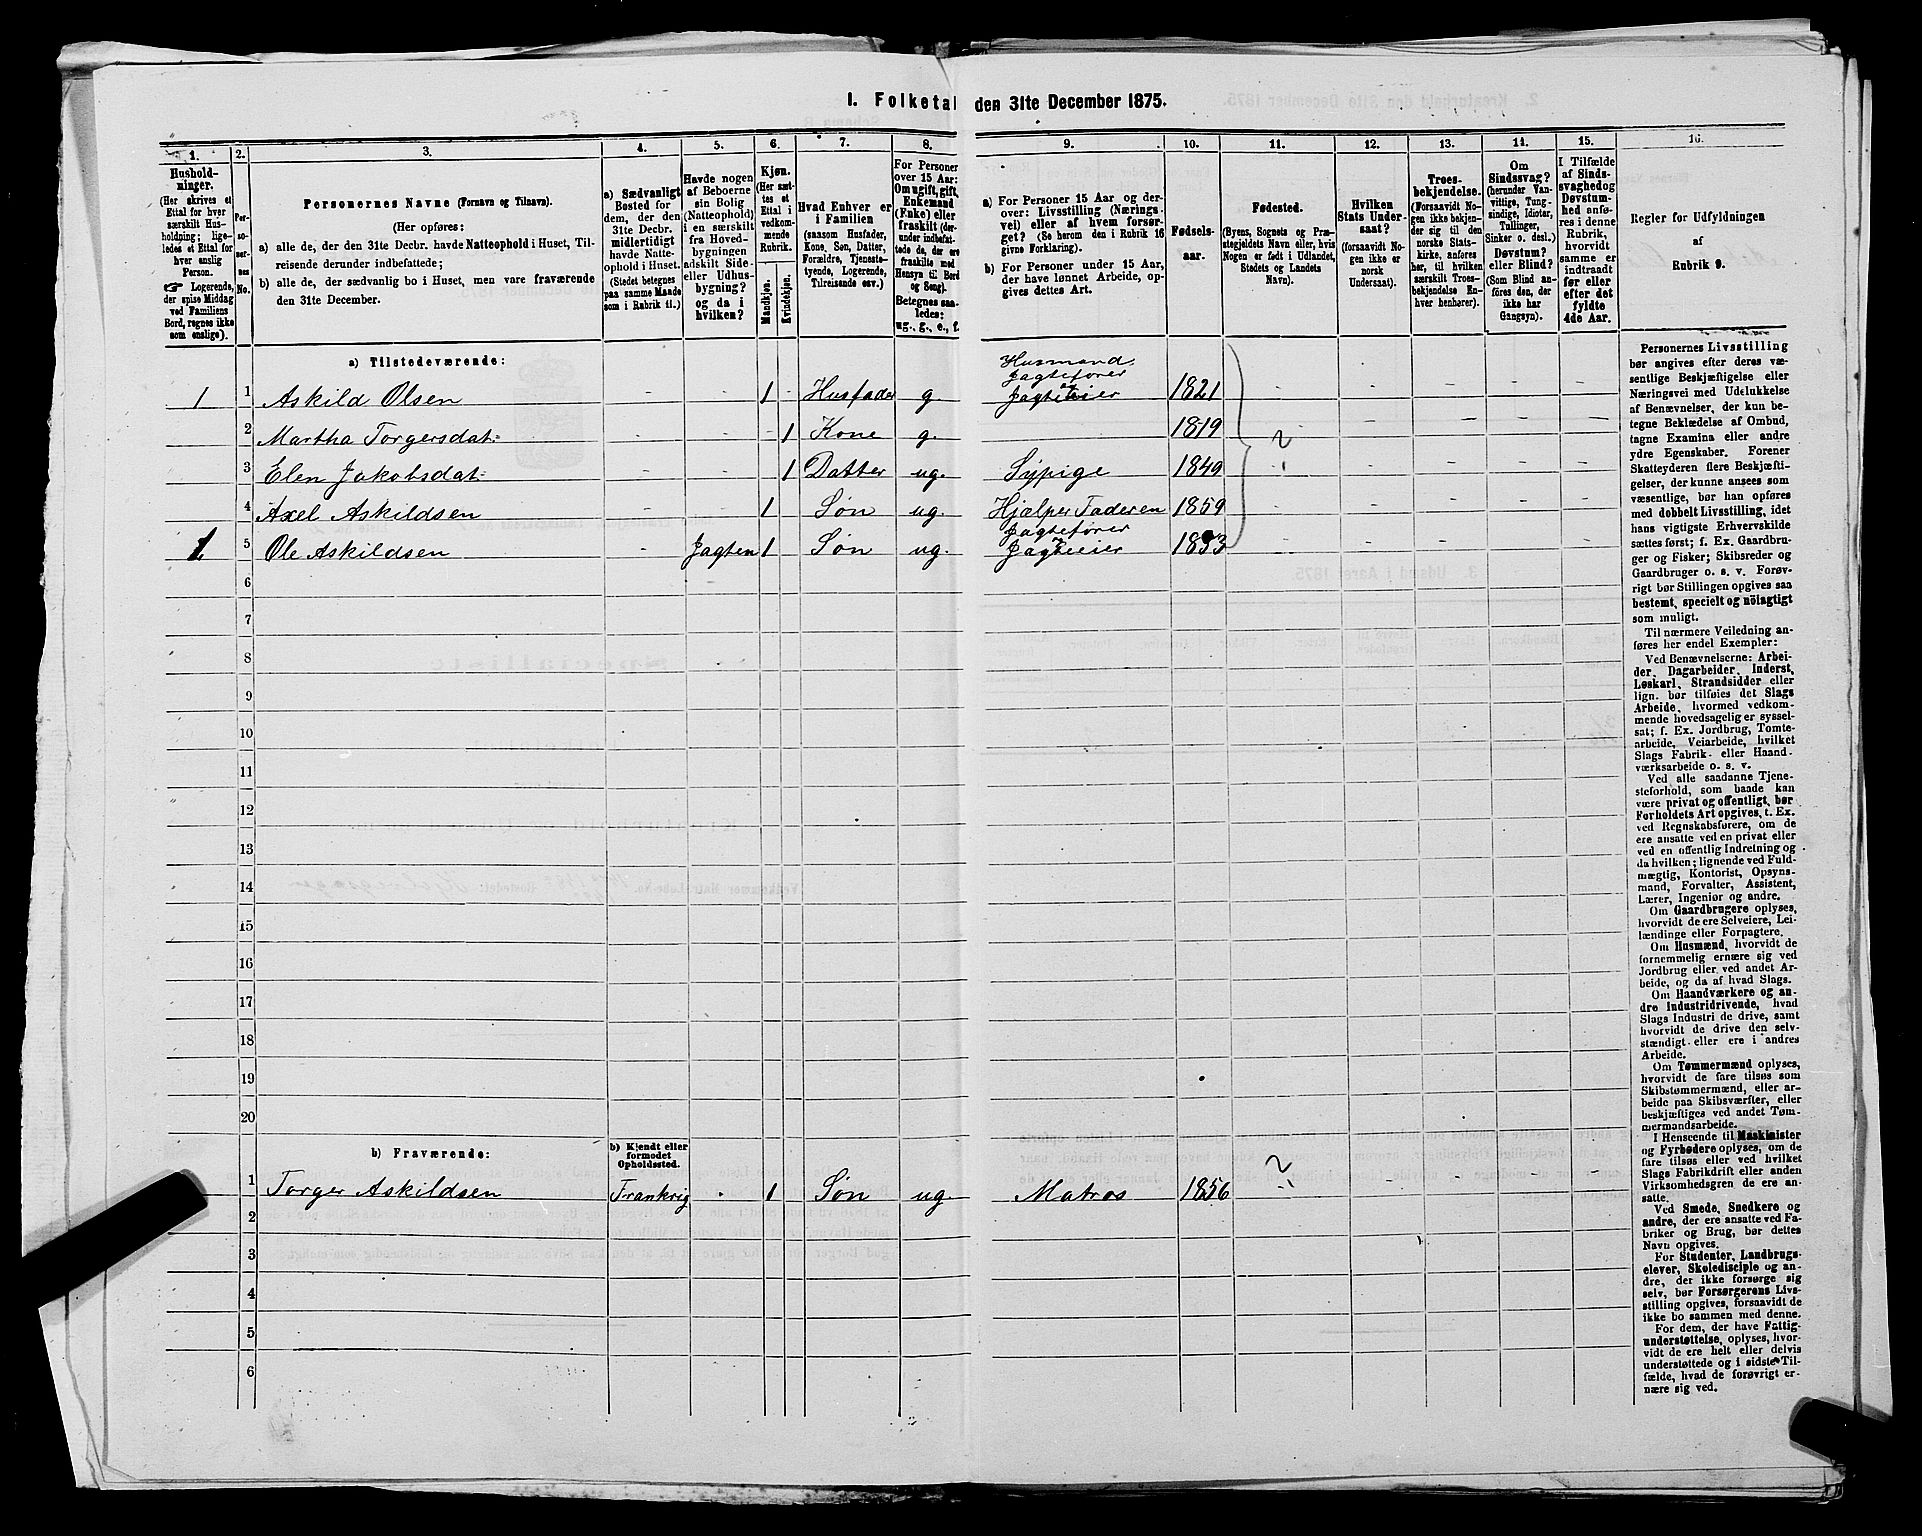 1. Folketal den 31te December 1875.
1.
2.
3.
4.
5.
6.
7.
8.
9.
10.
11.
12.
13.
14.
15.
16.
Hushold-
ninger.
(Her skrives et
Ettal for hver
særskilt Hus-
holdning; lige-
ledes et Ettal for
hver enslig
Person.
☞ Logerende,
der spise Middag
ved Familiens
Bord, regnes ikke
som enslige).
Per-
so-
ner-
nes
No.
Personernes Navne (Fornavn og Tilnavn).
(Her opføres:
a) alle de, der den 31te Decbr. havde Natteophold i Huset, Til-
reisende derunder indbefattede;
b) alle de, der sædvanlig bo i Huset, men vare fraværende
den 31te December.
a) Sædvanligt
Bosted for
dem, der den
31te Decbr.
midlertidigt
havde Natte-
ophold i Huset.
(Stedet betegnes
paa samme Maade
som i Rubrik 11.)
Havde nogen
af Beboerne
sin Bolig
(Natteophold)
i en særskilt
fra Hoved-
bygningen
adskilt Side-
eller Udhus-
bygning?
og da i
hvilken?
Kjøn.
(Her sæt-
tes et
Ettal i
vedkom-
mende
Rubrik.
Mandkjøn.
Kvindekjøn.
Hvad Enhver er
i Familien
(saasom Husfader,
Kone, Søn, Datter,
Forældre, Tjeneste-
tyende, Logerende,
Tilreisende osv.)
For Personer
over 15 Aar:
Om ugift, gift,
Enkemand
(Enke) eller
fraskilt (der-
under indbefat-
tede de, der ere
fraskilte med
Hensyn til Bord
og Seng).
Betegnes saa-
ledes:
ug., g., e., f.
a) For Personer 15 Aar og der-
over: Livsstilling (Nærings-
vei) eller af hvem forsør-
get? (Se herom den i Rubrik 16
givne Forklaring).
b) For Personer under 15 Aar,
der have lønnet Arbeide, op-
gives dettes Art.
Fødsels-
aar.
Fødested.
(Byens, Sognets og Præ-
stegjeldets Navn eller, hvis
Nogen er født i Udlandet,
Stedets og Landets
Navn).
Hvilken
Stats Under-
saat?
(forsaavidt No-
gen ikke er
norsk
Undersaat).
Troes-
bekjendelse.
(Forsaavidt No-
gen ikke bekjen-
der sig til den
norske Stats-
kirke, anføres
her, til hvilken
særskilt Troes-
bekjendelse En-
hver henhører).
Om
Sindssvag?
(herunder Van-
vittige, Tung-
sindige, Idioter,
Tullinger,
Sinker o. desl.)
Døvstum?
eller Blind?
(Som Blind an-
føres den, der
ikke har
Gangsyn).
I Tilfælde
af Sinds-
svaghed og
Døvstum-
hed anfø-
res i denne
Rubrik,
hvorvidt
samme er
indtraadt
før eller
efter det
fyldte
4de Aar.
Regler for Udfyldningen
af
Rubrik 9.
a) Tilstedeværende:
1 1 Askild Olsen - - 1 - Husfader g. Husmand Jagtefører og Jagteeier 1821
2 Martha Torgersdat: - - 1 Kone g. 1819
3 Elen Jakobsdat: - - 1 Datter ug. Sypige 1849
4 Axel Askildsen - - 1 Søn ug. Hjælper Faderen 1859
1 5 Ole Askildsen - Jagten 1 Søn ug. Jagtefører og Jagteeier 1853
6
7
8
9
10
11
12
13
14
15
16
17
18
19
20
b) Fraværende:
b) Kjendt eller
formodet
Opholdssted.
1 Torger Askildsen Frankrig - 1 Søn ug. Matros 1856
2
3
4
5
6
Personernes Livsstilling
bør angives efter deres væ-
sentlige Beskjæftigelse eller
Næringsvei med Udelukkelse
af Benævnelser, der kun be-
tegne Beklædelse af Ombud,
tagne Examina eller andre
ydre Egenskaber. Forener
Skatteyderen flere Beskjæfti-
gelser, der kunne ansees som
væsentlige, bør han opføres
med dobbelt Livsstilling, idet
hans vigtigste Erhvervskilde
sættes først; f. Ex. Gaardbru-
ger og Fisker; Skibsreder og
Gaardbruger o. s. v. Forøv-
rigt bør Stillingen opgives saa
bestemt, specielt og nöiagtigt
som muligt.
Til nærmere Veiledning an-
føres her endel Exempler:
Ved Benævnelserne: Arbei-
der, Dagarbeider, Inderst,
Løskarl, Strandsidder eller
lign. bør tilføies det Slags
Arbeide, hvormed vedkom-
mende hovedsagelig er syssel-
sat; f. Ex. Jordbrug, Tomte-
arbeide, Veiarbeide, hvilket
Slags Fabrik- eller Haand-
værksarbeide o. s. v.
Ved alle saadanne Tjene-
steforhold, som baade kan
være privat og offentligt, bør
Forholdets Art opgives, t. Ex.
ved Regnskabsførere, om de
ere ansatte ved en privat eller
ved en offentlig Indretning og
da hvilken; lignende ved Fuld-
mægtig, Kontorist, Opsyns-
mand, Forvalter, Assistent,
Lærer, Ingeniør og andre.
Om Gaardbrugere oplyses,
hvorvidt de ere Selveiere, Lei-
lændinge eller Forpagtere.
Om Husmænd, hvorvidt de
fornemmelig ernære sig ved
Jordbrug eller ved andet Ar-
beide, og da af hvad Slags.
Om Haandværkere og an-
dre Industridrivende, hvad
Slags Industri de drive, samt
hvorvidt de drive den selv-
stændigt eller ere i andres
Arbeide.
Om Tømmermænd oplyses,
hvorvidt de fare tilsøs som
Skibstømmermænd, eller ar-
beide paa Skibsværfter, eller
beskjæftiges ved andet Tøm-
mermandsarbeide.
I Henseende til Maskinister
og Fyrbødere oplyses, om de
fare tilsøs eller ved hvilket
Slags Fabrikdrift eller anden
Virksomhedsgren de ere an-
satte.
Ved Smede, Snedkere og
andre, der ere ansatte ved Fa-
briker og Brug, bør dettes
Navn opgives.
For Studenter, Landbrugs-
elever, Skoledisciple og an-
dre, der ikke forsørge sig
selv, bør Forsørgerens Livs-
stilling opgives, forsaavidt de
ikke bo sammen med denne.
For dem, der have Fattig-
understøttelse, oplyses, hvor-
vidt de ere helt eller delvis
understøttede og i sidste Til-
fælde, hvad de forøvrigt er-
nære sig ved.